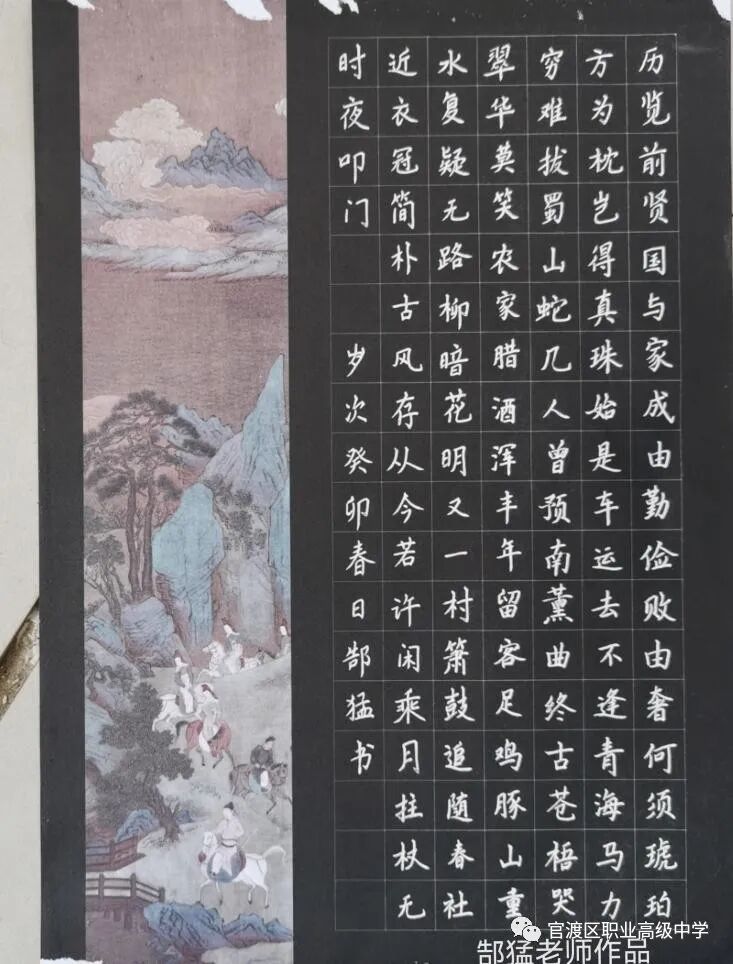 历览前贤国与家成由勤俭败由奢何须琥珀
方为枕岂得真珠始是车运去不逢青海马力
穷难拔蜀山蛇几人曾预南薰曲终古苍梧哭
翠华莫笑农家腊酒浑丰年留客足鸡豚山重
水复疑无路柳暗花明又一村箫鼓追随春社
近衣冠简朴古风存从今若许闲乘月拄杖无
时夜叩门 岁次癸卯春日郜猛书
官渡区职业高级中学
郜猛老师作品